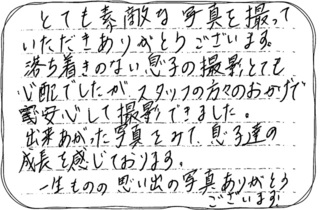 とても素敵な写真を撮って
いただきありがとうございます。
落ち着きのない息子の撮影とても
心配でしたが、スタッフの方々のおかげで
安心して撮影できました。
出来あがった写真をみて、息子達の
成長を感じております。
一生ものの思い出の写真ありがとう
ございます。